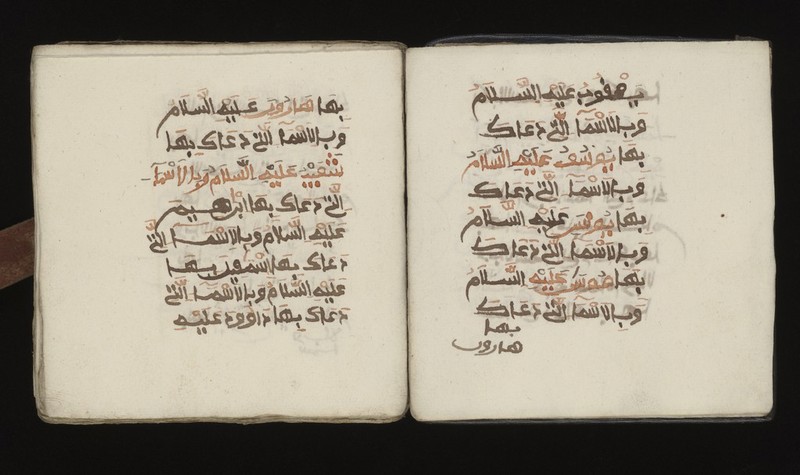 يعقوب عليه السلام
وبالاسما التي دعاك
بها يوسف عليه السلام
وبالاسما التي دعاك
بها يونس عليه السلام
وبالاسما التي دعاك
بها موسى عليه السلام
وبالاسما التي دعاك
بها
هارون
بها هارون عليه السلام
وبالاسما التي دعاك بها
شعيب عليه السلام وبالاسما
التي دعاك بها ابرهيم
عليه السلام وبالاسما التي
دعاك بها اسمعيل بها
عليه السلام وبالاسما التي
دعاك بها داوود عليه